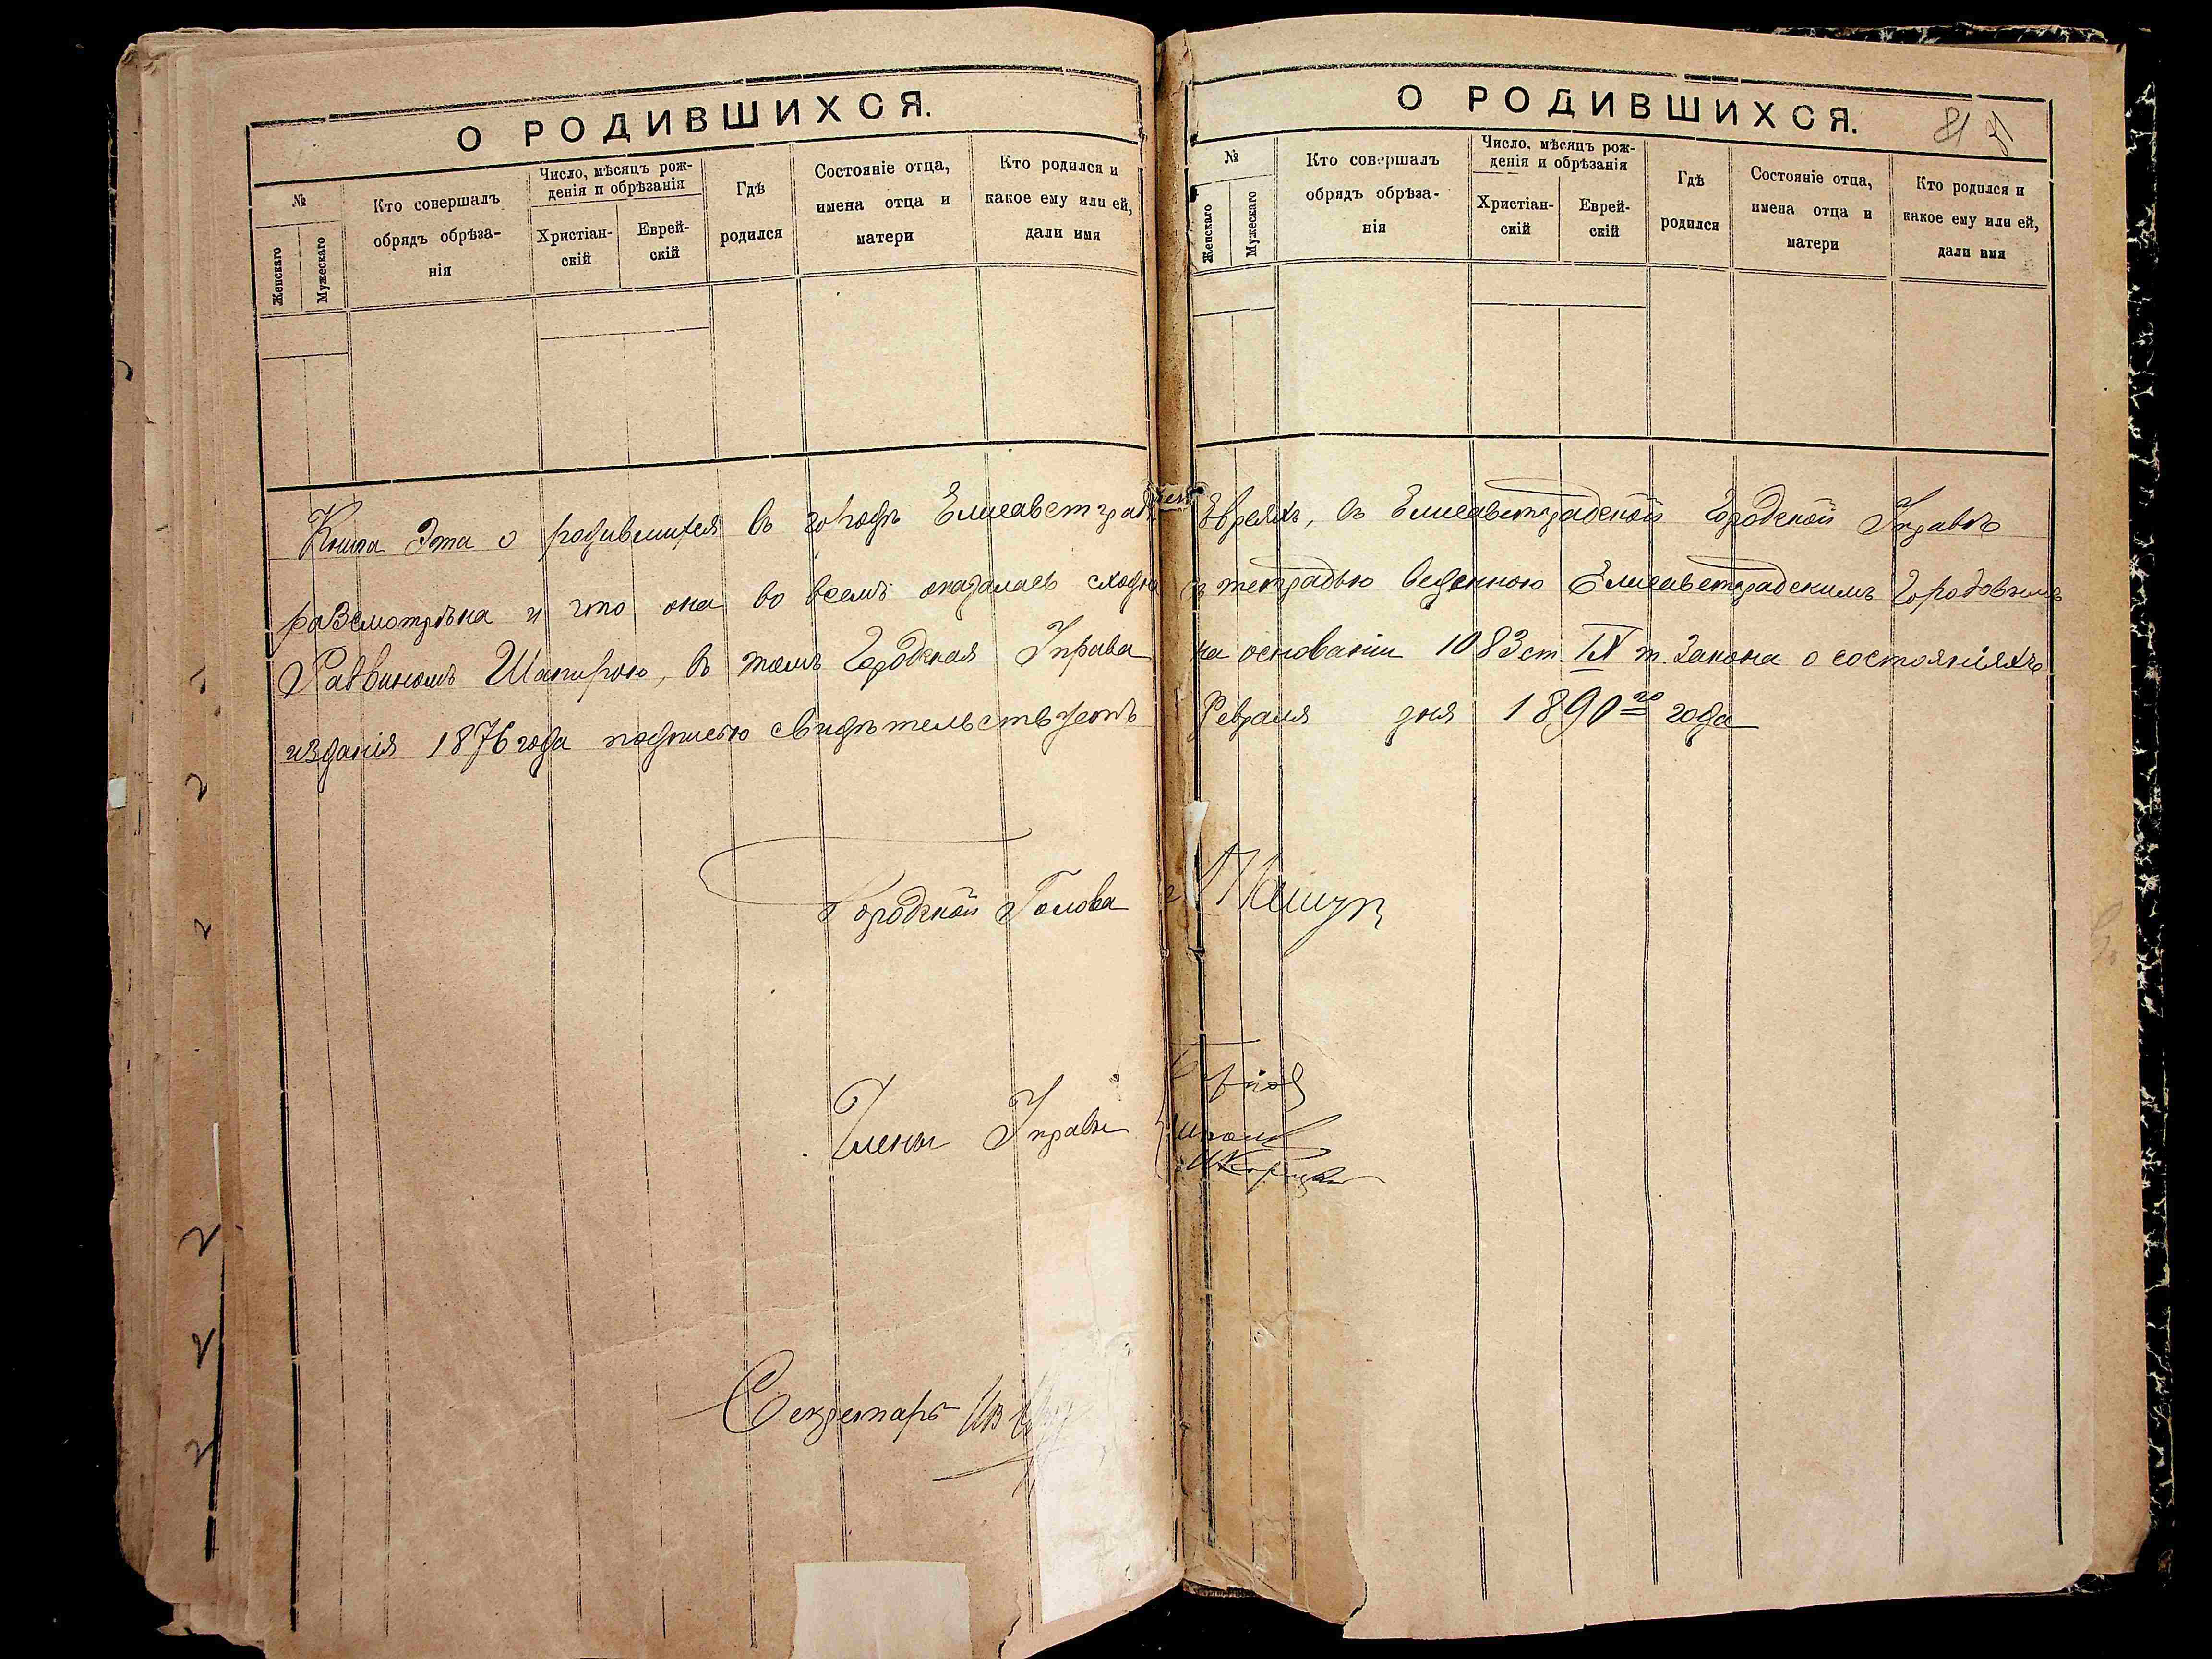 О РОДИВШИХСЯ.
№
Женскаго
Мужескаго
Кто совершалъ
обрядъ обрѣза-
нія
Число, мѣсяцъ рож-
денія и обрѣзанія
Христіан-
скій
Еврей-
скій
Гдѣ
родился
Состояніе отца,
имена отца и
матери
Кто родился и
какое ему или ей,
дали имя
О РОДИВШИХСЯ.
81
№
Женскаго
Мужескаго
Кто совершалъ
обрядъ обрѣза-
нія
Число, мѣсяцъ рож-
денія и обрѣзанія
Христіан-
скій
Еврей-
скій
Гдѣ
родился
Состояніе отца,
имена отца и
матери
Кто родился и
какое ему или ей,
дали имя
Книга эта о родившихся въ городѣ Елисаветградѣ Евреяхъ, въ Елисаветградской Городской Управѣ
разсмотрѣна и что она во всемъ оказалась сходна съ тетрадью веденною Елисаветградскимъ Городовымъ
Раввиномъ Шапирою, въ томъ Городская Управа на основаніи 1083 ст. IX т. Закона о состояніяхъ
изданія 1876 года подписью свидѣтельствуетъ Февраля дня 1890го года
Городской Голова Пашут
Члены Управы
Секретарь